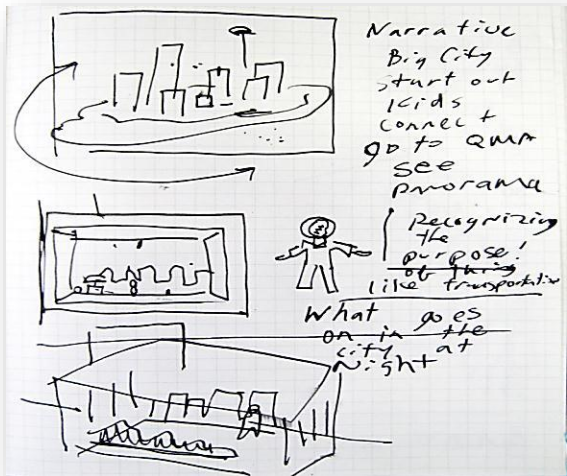 Narrative
Big City
Start out
Kids
connect
go to QMA
see
panorama
Recognizing
the
purpose!
like transportation
What goes
on in the
city at
Night